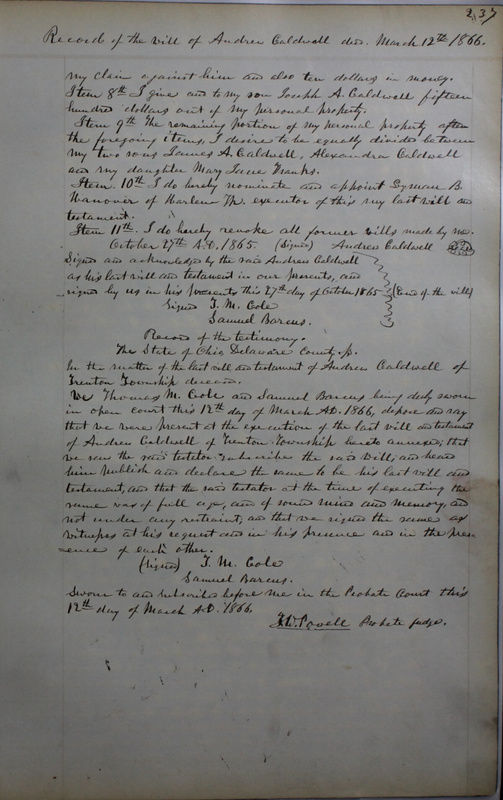 237
Record of the will of Andrew Caldwell decd. March 12th 1866.
my claim against him and also ten dollars in money.
Item 8th I give and to my son Joseph A. Caldwell fifteen
hundred dollars out of my personal property.
Item 9th The remaining portion of my personal property after
the foregoing items, I desire to be equally divided between
my two sons James A. Caldwell, Alexander Caldwell
and my daughter Mary Jane Franks.
Item 10th I do hereby nominate and appoint Lyman B.
Hanover of Harlem Tp. executor of this my last will and
testament.
Item 11th. I do hereby revoke all former wills made by me.
October 27th A.D. 1865. (Signed) Andrew Caldwell
Signed and acknowledged by the said Andrew Caldwell
as his last will and testament in our presents, and
signed by us in his presents this 27th day of October 1865 (End of the will)
Signed T. M. Cole
Samuel Barcus.
Record of the testimony.
The State of Ohio Delaware County, ss.
In the matter of the last will and testament of Andrew Caldwell of
Trenton Township deceased.
We Thomas M. Cole and Samuel Barcus being duly sworn
in open court this 12th day of March A.D. 1866, depose and say
that we were present at the execution of the last will and testament
of Andrew Caldwell of Trenton Township hereto annexed; that
we saw the said testator subscribe the said Will, and heard
him publish and declare the same to be his last will and
testament, and that the said testator at the time of executing the
same was of full age, and of sound mind and memory, and
not under any restraint, and that we signed the same as
witnesses at his request and in his presence and in the pres-
ence of each other.
(Signed) T. M. Cole
Samuel Barcus.
Sworn to and subscribed before me in the Probate Court this
12th day of March A.D. 1866.
T.W. Powell Probate Judge.